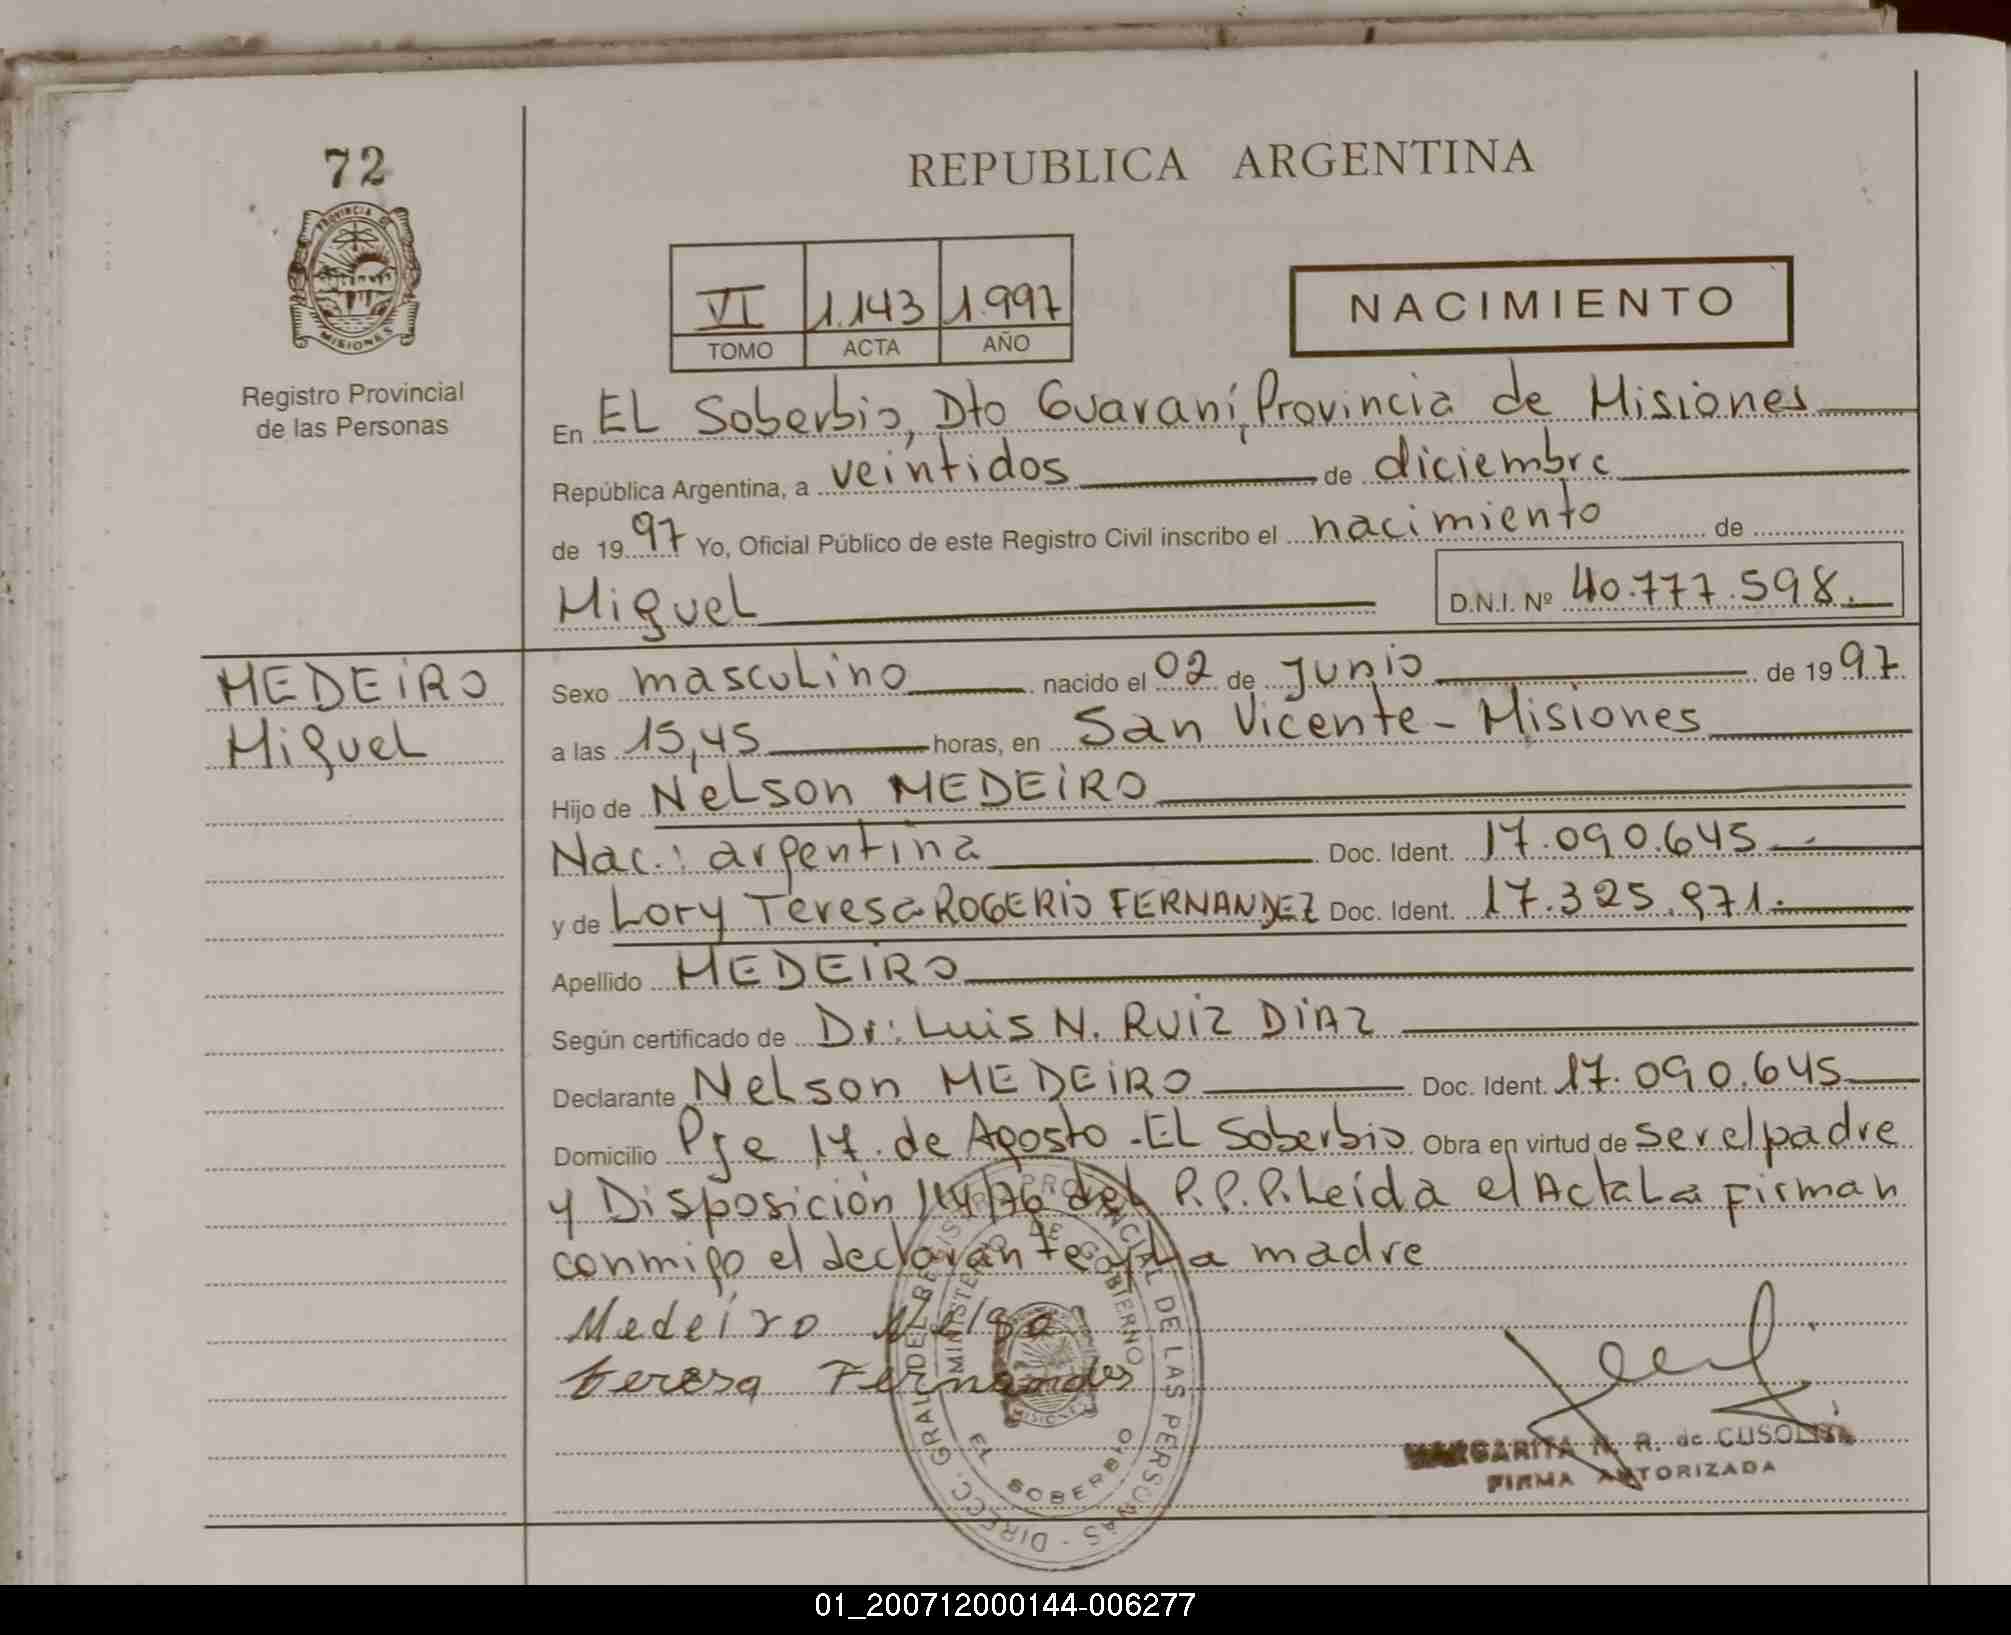 72
REPUBLICA ARGENTINA
PROVINCIA DE
MISIONES
Registro Provincial
de las Personas
VI 1.143 1.997
TOMO ACTA AÑO
NACIMIENTO
En EL Soberbio, Dto Guaraní, Provincia de Misiones
República Argentina, a veintidos de diciembre
de 1997 Yo, Oficial Público de este Registro Civil inscribo el nacimiento de
Miguel D.N.I. Nº 40.777.598.
MEDEiRO
Miguel
Sexo masculino nacido el 02 de junio de 1997
a las 15,45 horas, en San Vicente - Misiones
Hijo de Nelson MEDEiRO
Nac.: argentina Doc. Ident. 17.090.645
y de Lory Teresa ROGERiO FERNANDEZ Doc. Ident. 17.325.971.
Apellido MEDEIRO
Según certificado de Dr: Luis N. RUiZ DiAZ
Declarante Nelson MEDEiRO Doc. Ident. 17.090.645
Domicilio Pje 17 de Agosto - EL Soberbio Obra en virtud de ser el padre
y Disposición 114/76 del P.P.P. Leída el Acta La firman
conmigo el declarante y La madre
Medeiro
teresa Fernandes
DIRECC. GRAL. DEL REGISTRO PROVINCIAL DE LAS PERSONAS
MINISTERIO DE GOBIERNO
MISIONES
EL SOBERBIO
MARGARITA R. de
FIRMA AUTORIZADA
01_200712000144-006277